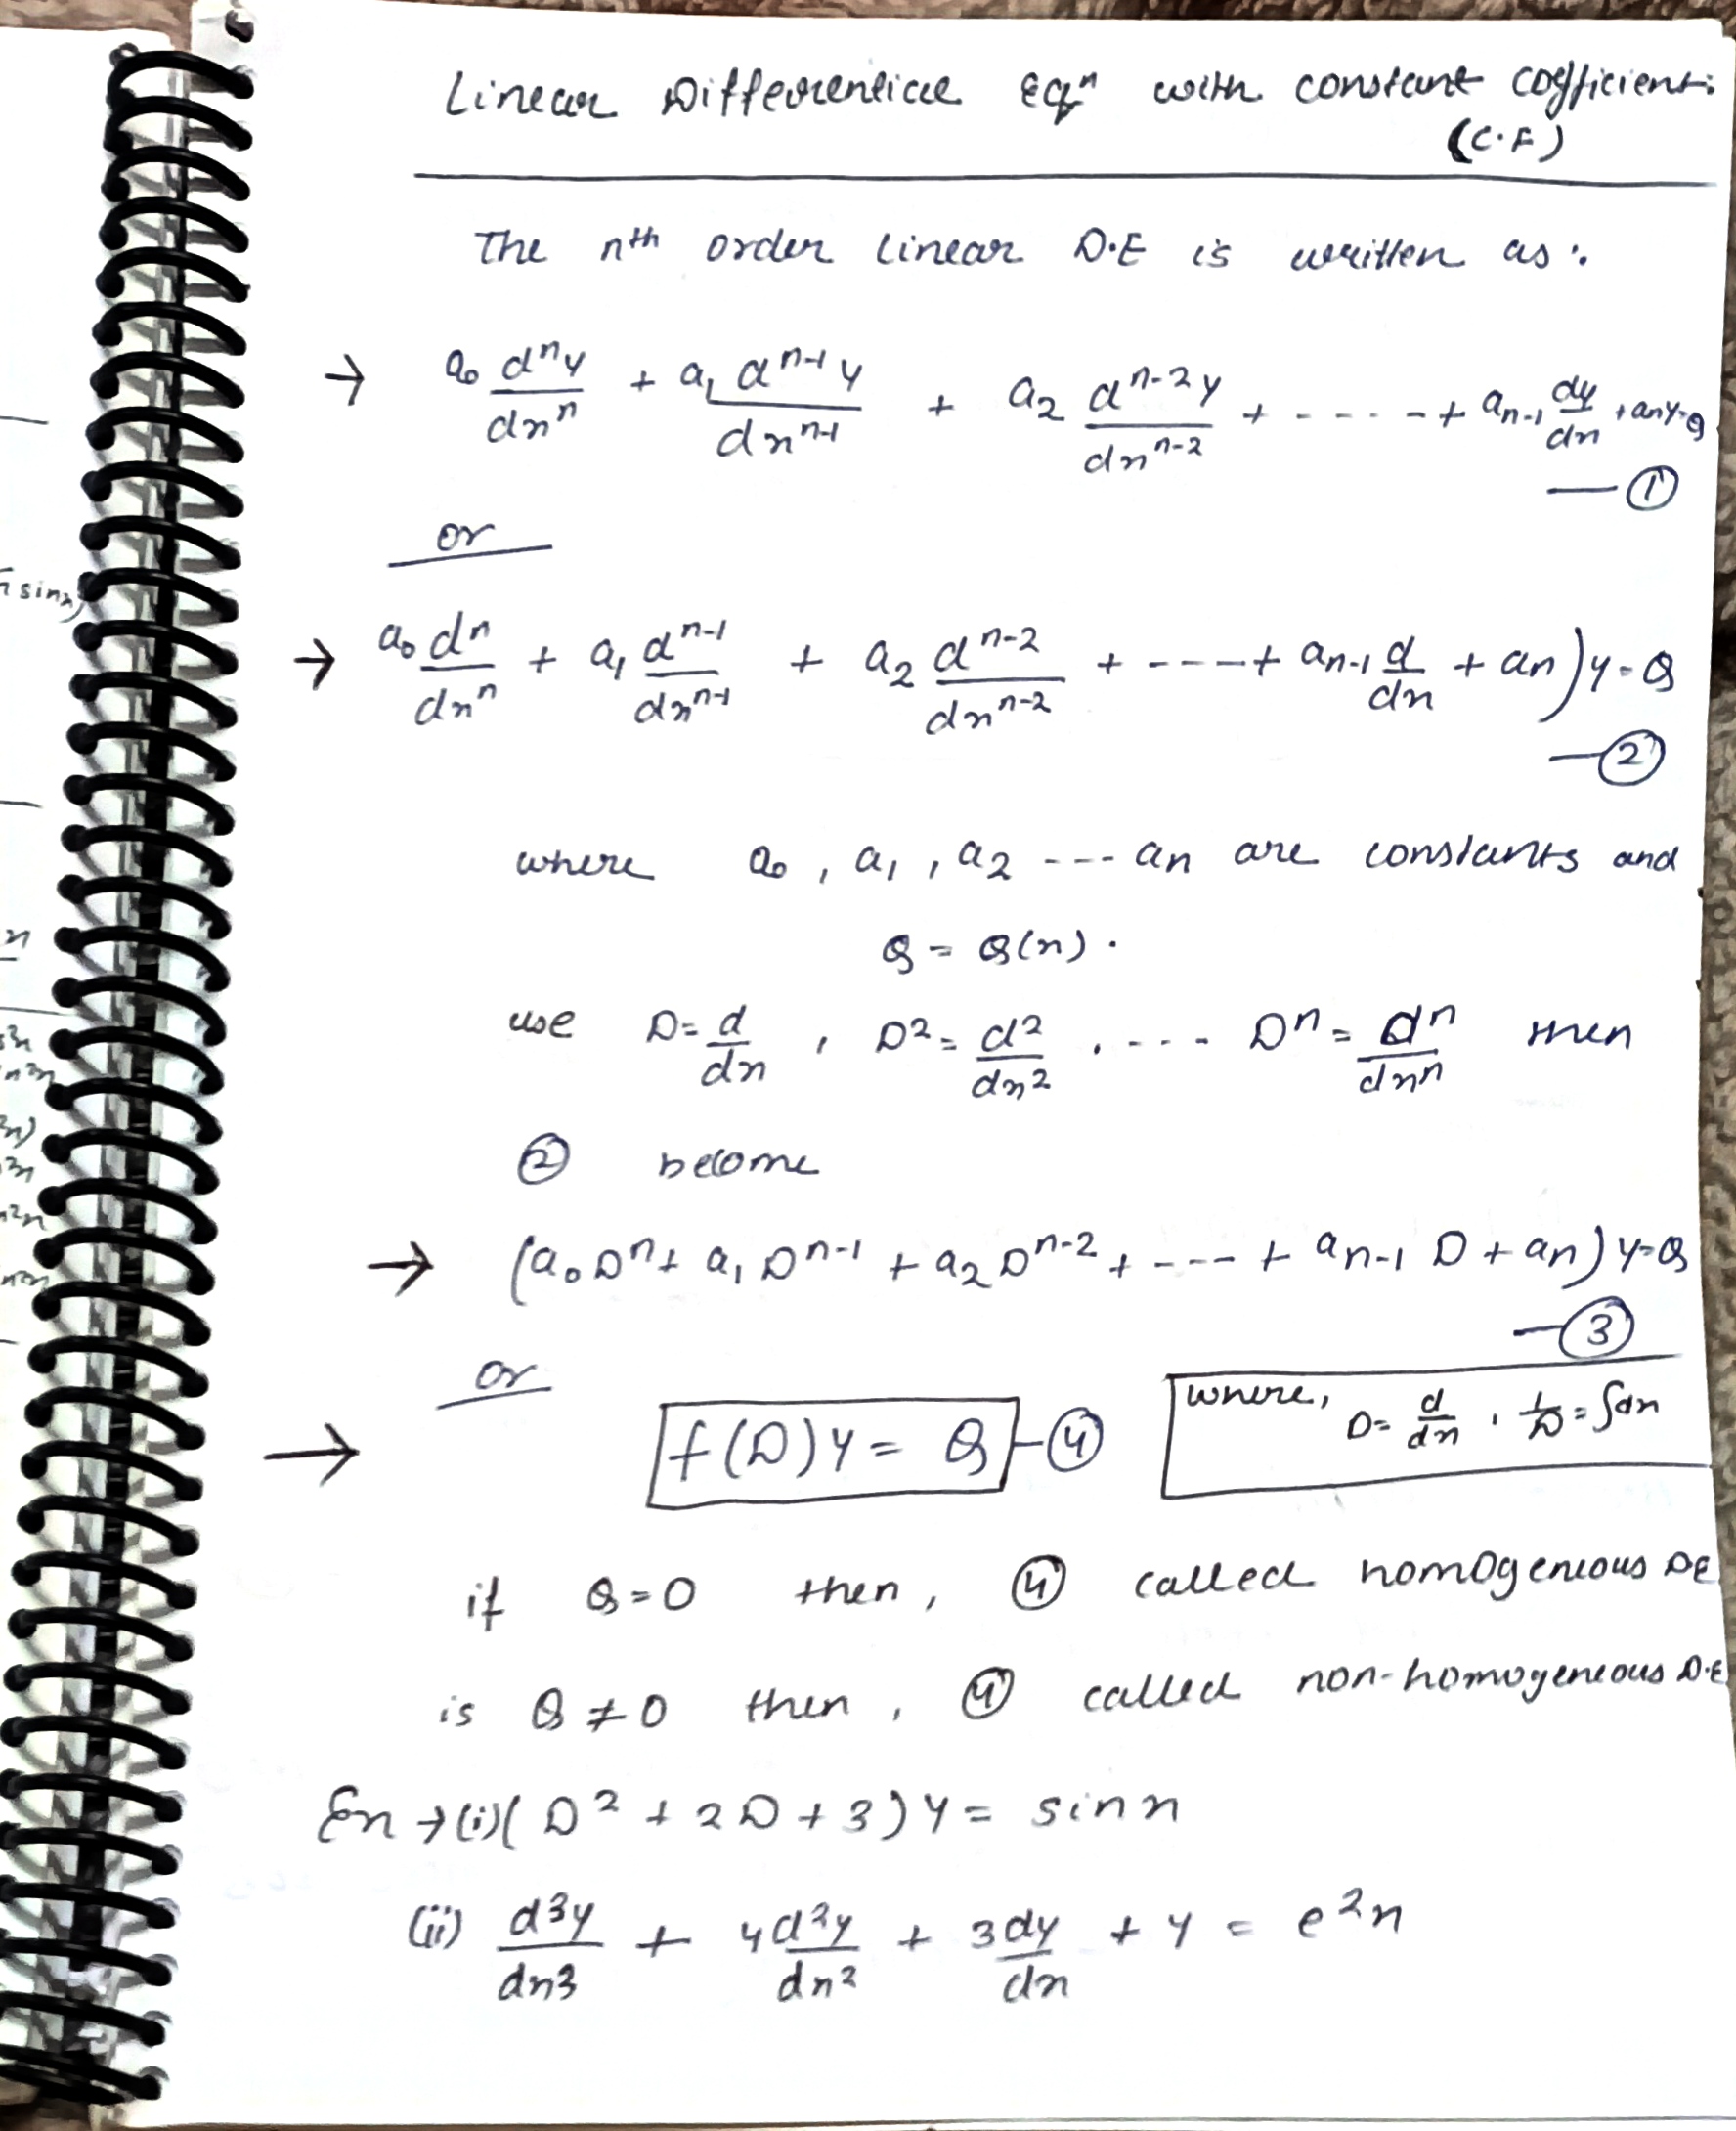 Linear Differential Eqn with constant coefficient:
(C.F)
The nth order linear D.E is written as:
→ a₀ dⁿy/dxⁿ + a₁ dⁿ⁻¹y/dxⁿ⁻¹ + a₂ dⁿ⁻²y/dxⁿ⁻² + - - - - + aₙ₋₁ dy/dx + aₙy = Q
— ①
or
→ a₀ dⁿ/dxⁿ + a₁ dⁿ⁻¹/dxⁿ⁻¹ + a₂ dⁿ⁻²/dxⁿ⁻² + - - - - + aₙ₋₁ d/dx + aₙ) y = Q
— ②
where a₀, a₁, a₂ - - - aₙ are constants and
Q = Q(x).
use D = d/dx , D² = d²/dx² , - - - Dⁿ = dⁿ/dxⁿ then
② become
→ (a₀Dⁿ + a₁Dⁿ⁻¹ + a₂Dⁿ⁻² + - - - + aₙ₋₁ D + aₙ) y = Q
— ③
or
→ f(D)y = Q — ④
where, D = d/dx , 1/D = ∫dx
if Q = 0 then, ④ called homogeneous DE
is Q ≠ 0 then, ④ called non-homogeneous D.E
Ex → (i) (D² + 2D + 3)y = sinx
(ii) d³y/dx³ + 4d²y/dx² + 3dy/dx + y = e²x